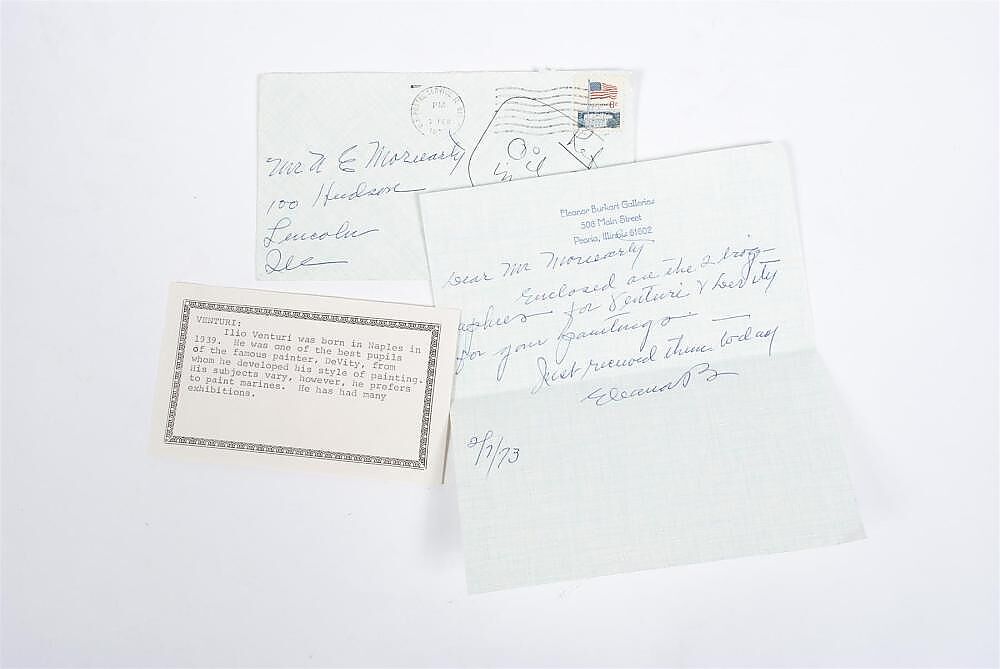 PM
FEB
6c
Mr N E Moriearty
100 Hudson
Lincoln
Ill
Eleanor Burkart Galleries
508 Main Street
Peoria, Illinois 61602
Dear Mr Moriearty
Enclosed are the 2 biog-
raphies for Venturi & DeVity
for your paintings —
Just received them today
Eleanor B
2/7/73
VENTURI:
Ilio Venturi was born in Naples in
1939. He was one of the best pupils
of the famous painter, DeVity, from
whom he developed his style of painting.
His subjects vary, however, he prefers
to paint marines. He has had many
exhibitions.